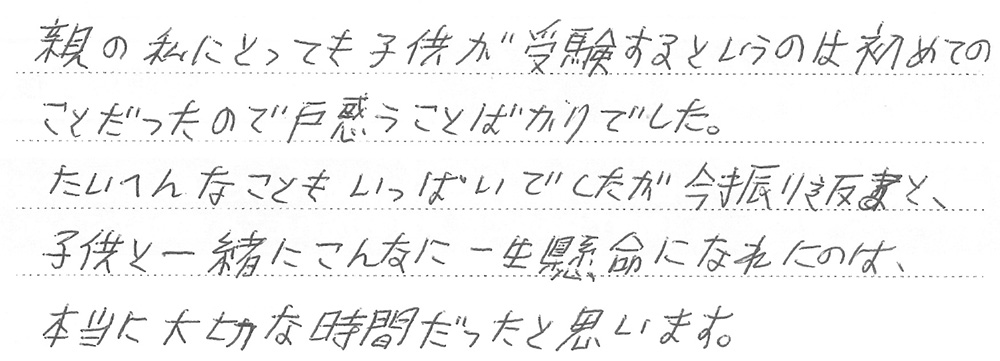 親の私にとっても子供が受験するというのは初めての
ことだったので戸惑うことばかりでした。
たいへんなこともいっぱいでしたが今振り返ると、
子供と一緒にこんなに一生懸命になれたのは、
本当に大切な時間だったと思います。